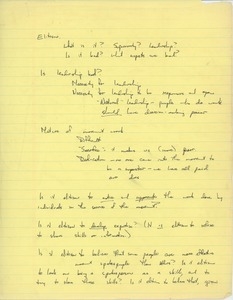 Elitism
What is it? Superiority? Leadership?
Is it bad? What aspects are bad?
Is leadership bad?
Necessity for leadership
Necessity for leadership to be responsive and open
Natural leadership - people who do work
should have decision-making power
Nature of movement work
Difficult
Sacrifice: it makes us poor
Dedication
to be a - we have all paid
our dues
Is it elitism to and appropriate the work done by
individuals in the name of the movement?
Is it elitism to develop expertise? (It is elitism to refuse
to share skills or information)
Is it elitism to believe that some people are more effective
movement spokespeople than others? Is it elitism
to look on being a spokesperson as a skill, and to
try to share those skills? Is it elitism to believe that, given